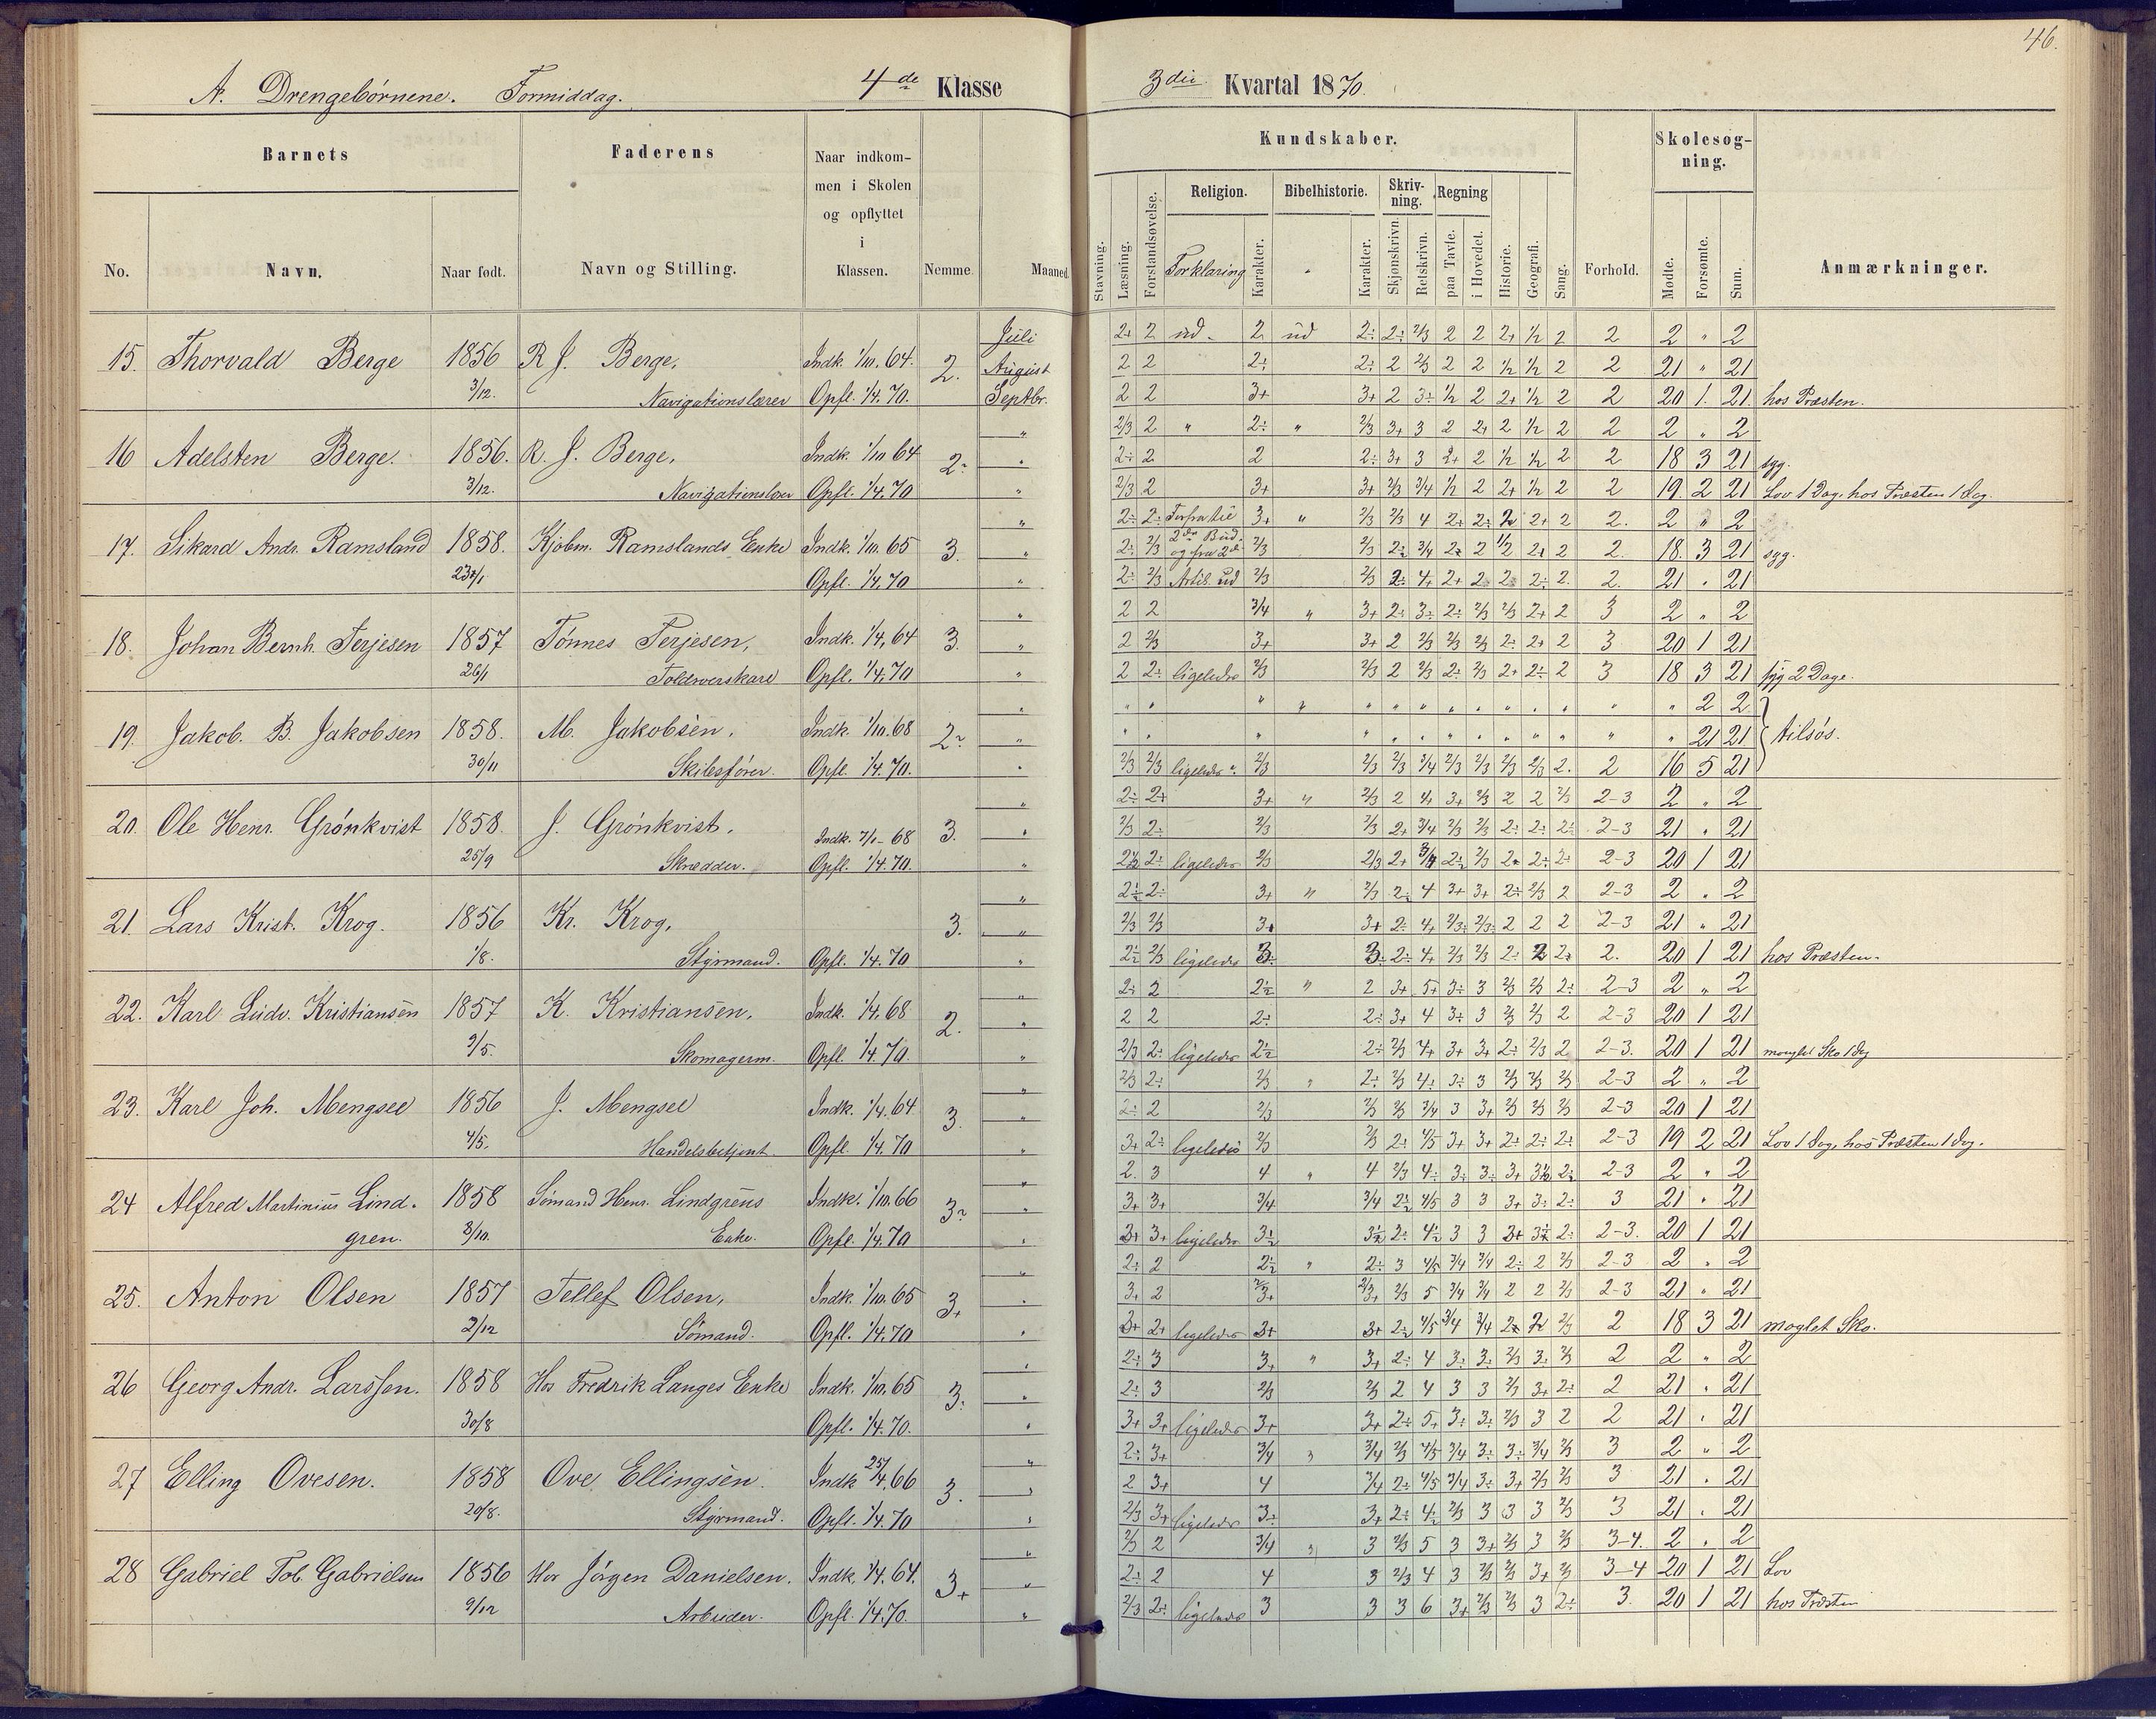 46.
A. Drengebørnene. Formiddag. 4de Klasse
3die Kvartal 1870.
Barnets
Faderens
Naar indkommen i Skolen og opflyttet i Klassen.
Nemme.
Maaned.
No.
Navn.
Naar født.
Navn og Stilling.
Kundskaber.
Stavning.
Læsning.
Forstandsøvelse.
Religion.
Forklaring
Karakter.
Bibelhistorie.
Karakter.
Skrivning.
Skjønskrivn.
Retskrivn.
Regning
paa Tavle.
i Hovedet.
Historie.
Geografi.
Sang.
Forhold.
Skolesøgning.
Mødte.
Forsømte.
Sum.
Anmærkninger.
15. Thorvald Berge 1856 3/12. R. J. Berge, Navigationslærer Indk. 1/10. 64. Opfl. 1/4. 70. 2.
Juli 2+ 2 ud. 2 ud 2÷ 2÷ 2/3 2 2 2+ 1/2 2 2 2 " 2
August 2 2 2÷ 2÷ 2 2/3 2 2 1/2 1/2 2 2 21 " 21
Septbr. 2 2 3+ 3+ 2 3÷ 1/2 2 2+ 1/2 2 2 20 1. 21 hos Præsten.
16 Adelsten Berge. 1856. 3/12. R. J. Berge, Navigationslærer Indk. 1/10 64 Opfl. 1/4. 70 2÷
" 2/3 2 " 2÷ " 2/3 3+ 3 2 2+ 2 1/2 2 2 2 " 2
" 2÷ 2 2 2÷ 3+ 3 2+ 2 1/2 1/2 2 2 18 3 21 syg.
" 2/3 2 3+ 3+ 2/3 3/4 1/2 2 2+ 1/2 2 2 19. 2 21 Lov 1 Dag, hos Præsten 1 Dag.
17. Sikard Andr. Ramsland 1858. 23/1 Kjøbm. Ramslands Enke Indk. 1/10. 65 Opfl. 1/4. 70 3.
" 2÷ 2÷ Forfra til 3+ " 2/3 2/3 4 2+ 2÷ 2 2+ 2 2. 2 " 2
" 2÷ 2/3 2den Bud. og fra 2d 2/3 2/3 2÷ 3/4 2÷ 2 1/2 2+ 2 2. 18. 3 21 syg.
" 2÷ 2/3 Artik. ud 2/3 2/3 2÷ 4+ 2+ 2 2 2÷ 2. 2. 21 " 21
18. Johan Bernh. Terjesen 1857 26/1 Tønnes Terjesen, Indk. 1/4. 64 Opfl. 1/4. 70 3.
" 2 2 3/4 " 3+ 2÷ 3÷ 2÷ 2/3 2/3 2+ 2 3 2 " 2
" 2 2/3 3+ 3+ 2 2/3 2/3 2/3 2÷ 2+ 2 3 20 1 21
" 2 2÷ ligeledes 2/3 2/3 2 2/3 2÷ 2/3 2+ 2÷ 2 3 18 3 21 syg 2 Dage.
19. Jakob. B. Jakobsen 1858. 30/11 M. Jakobsen, Skibsfører. Indk. 1/10. 68 Opfl. 1/4. 70. 2÷
" " " " " " " " " " " " " " 2 2
" " " " " " " " " " " " " 21 21 tilsøs.
" 2/3 2/3 ligeledes 2/3 2/3 2/3 3/4 2/3 2/3 2/3 2/3 2. 2 16 5 21
20. Ole Henr. Grønkvist 1858. 25/9 J. Grønkvist, Skrædder. Indk. 7/1- 68 Opfl. 1/4. 70. 3.
" 2÷ 2+ 3+ " 2/3 2 4+ 3+ 2/3 2 2 2/3 2-3 2 " 2
" 2/3 2÷ 2/3 2/3 2+ 3/4 2/3 2/3 2÷ 2÷ 2÷ 2-3 21 " 21
" 2÷ 2÷ ligeledes 2/3 2/3 2+ 3/4 2÷ 2/3 2÷ 2÷ 2÷ 2-3 20 1 21
21. Lars Krist. Krog. 1856 1/8. Kr. Krog, Styrmand. Opfl. 1/4. 70 3.
" 2÷ 2÷ 3+ " 2/3 2÷ 4 3+ 3+ 2÷ 2/3 2 2-3 2 " 2
" 2/3 2/3 3+ 3+ 2÷ 4+ 2/3 2/3 2 2 2 2-3 21 " 21
" 2÷ 2/3 ligeledes 3÷ 3÷ 2÷ 4+ 2/3 2/3 2÷ 2 2÷ 2. 20 1 21 hos Præsten.
22. Karl Ludv. Kristiansen 1857 9/5. K. Kristiansen, Skomagerm. Indk. 1/4. 68 Opfl. 1/4. 70. 2.
" 2÷ 2 2÷ " 2 3+ 5+ 3÷ 3 2/3 2/3 2÷ 2-3 2 " 2
" 2 2 2÷ 2÷ 3+ 4 3÷ 3 2/3 2/3 2 2-3 20 1 21
" 2/3 2÷ ligeledes 2÷ 2÷ 2/3 4+ 3+ 3+ 2÷ 2/3 2 2-3. 20 1 21 manglet Sko 1 Dag
23. Karl Joh. Mengsel 1856 4/5. J. Mengsel Handelsbetjent. Indk. 1/4. 64 Opfl. 1/4. 70 3.
" 2/3 2÷ 2/3 " 2÷ 2/3 4÷ 3÷ 3 2/3 2/3 2/3 2-3 2 " 2
" 2÷ 2 2/3 2/3 2/3 3/4 3 3+ 2/3 2/3 2/3 2-3 20 1 21
" 3+ 2÷ ligeledes 2/3 2/3 2÷ 4/5 3+ 3+ 2÷ 2÷ 2÷ 2-3 19 2 21 Lov 1 Dag, hos Præsten 1 Dag.
24 Alfred Martinius Lindgren. 1858 8/10. Sømand Henr. Lindgrens Enke. Indk. 1/10. 66 Opfl. 1/4. 70 3÷
" 2. 3 4 " 4 2/3 4÷ 3÷ 3÷ 3+ 3÷ 2÷ 2-3 2 " 2
" 3+ 3+ 3/4 3/4 2÷ 4/5 3 3 3+ 3÷ 2÷ 3 21 " 21
" 3+ 3+ ligeledes 3÷ 3÷ 2÷ 4÷ 3 3 3+ 3÷ 2÷ 2-3. 20 1 21
25. Anton Olsen 1857 2/12 Tellef Olsen, Sømand. Indk. 1/10. 65 Opfl. 1/4. 70 3+
" 2÷ 2 2÷ " 2÷ 3 4/5 3/4 3/4 2÷ 2 2/3 2-3 2 " 2
" 3+ 2 2/3 2/3 2/3 5 3/4 3/4 2 2 2/3 2-3 21 " 21
" 3+ 2+ ligeledes 3+ 3+ 2÷ 4/5 3/4 3/4 2 2 2/3 2 18 3 21 maglet Sko.
26 Georg Andr. Larssen. 1858 30/8 Hos Fredrik Langes Enke Indk. 1/10. 65 Opfl. 1/4. 70. 3÷
" 2÷ 3 3+ " 3+ 2÷ 4 3÷ 3÷ 2/3 3÷ 2/3 2 2 " 2
" 2÷ 3 2/3 2/3 2 4 3 3 2/3 3+ 2÷ 2 21 " 21
" 3+ 3+ ligeledes 3+ 3+ 2÷ 5+ 3÷ 3÷ 2/3 3 2 2 21 " 21
27 Elling Ovesen. 1858 20/8. Ove Ellingsen. Styrmand. Indk 25/4. 66 Opfl. 1/4. 70 3.
" 2÷ 3+ 3/4 " 3/4 2/3 4/5 3/4 3÷ 3÷ 3/4 2/3 3 2 " 2
" 2 3+ 4 3/4 2÷ 4/5 3/4 3÷ 3+ 2/3 2/3 3 21 " 21
" 2/3 3+ ligeledes 3÷ 3+ 2÷ 4÷ 2/3 3 3 3 2/3 3 21 " 21
28 Gabriel Tob. Gabrielsen 1856 9/12 Hos Jørgen Danielsen. Arbeider. Indk. 1/4. 64. Opfl. 1/4. 70. 3+
" 2/3 2 3/4 " 3 2/3 5 3 3+ 2/3 3 2/3 3-4. 2 " 2
" 2÷ 2 4 3 2/3 4 3 2/3 2/3 3+ 2/3 3-4 20 1 21 Lov
" 2/3 2÷ ligeledes 3 3 3 6 3+ 2/3 2/3 3 2÷ 3. 20 1 21 hos Præsten